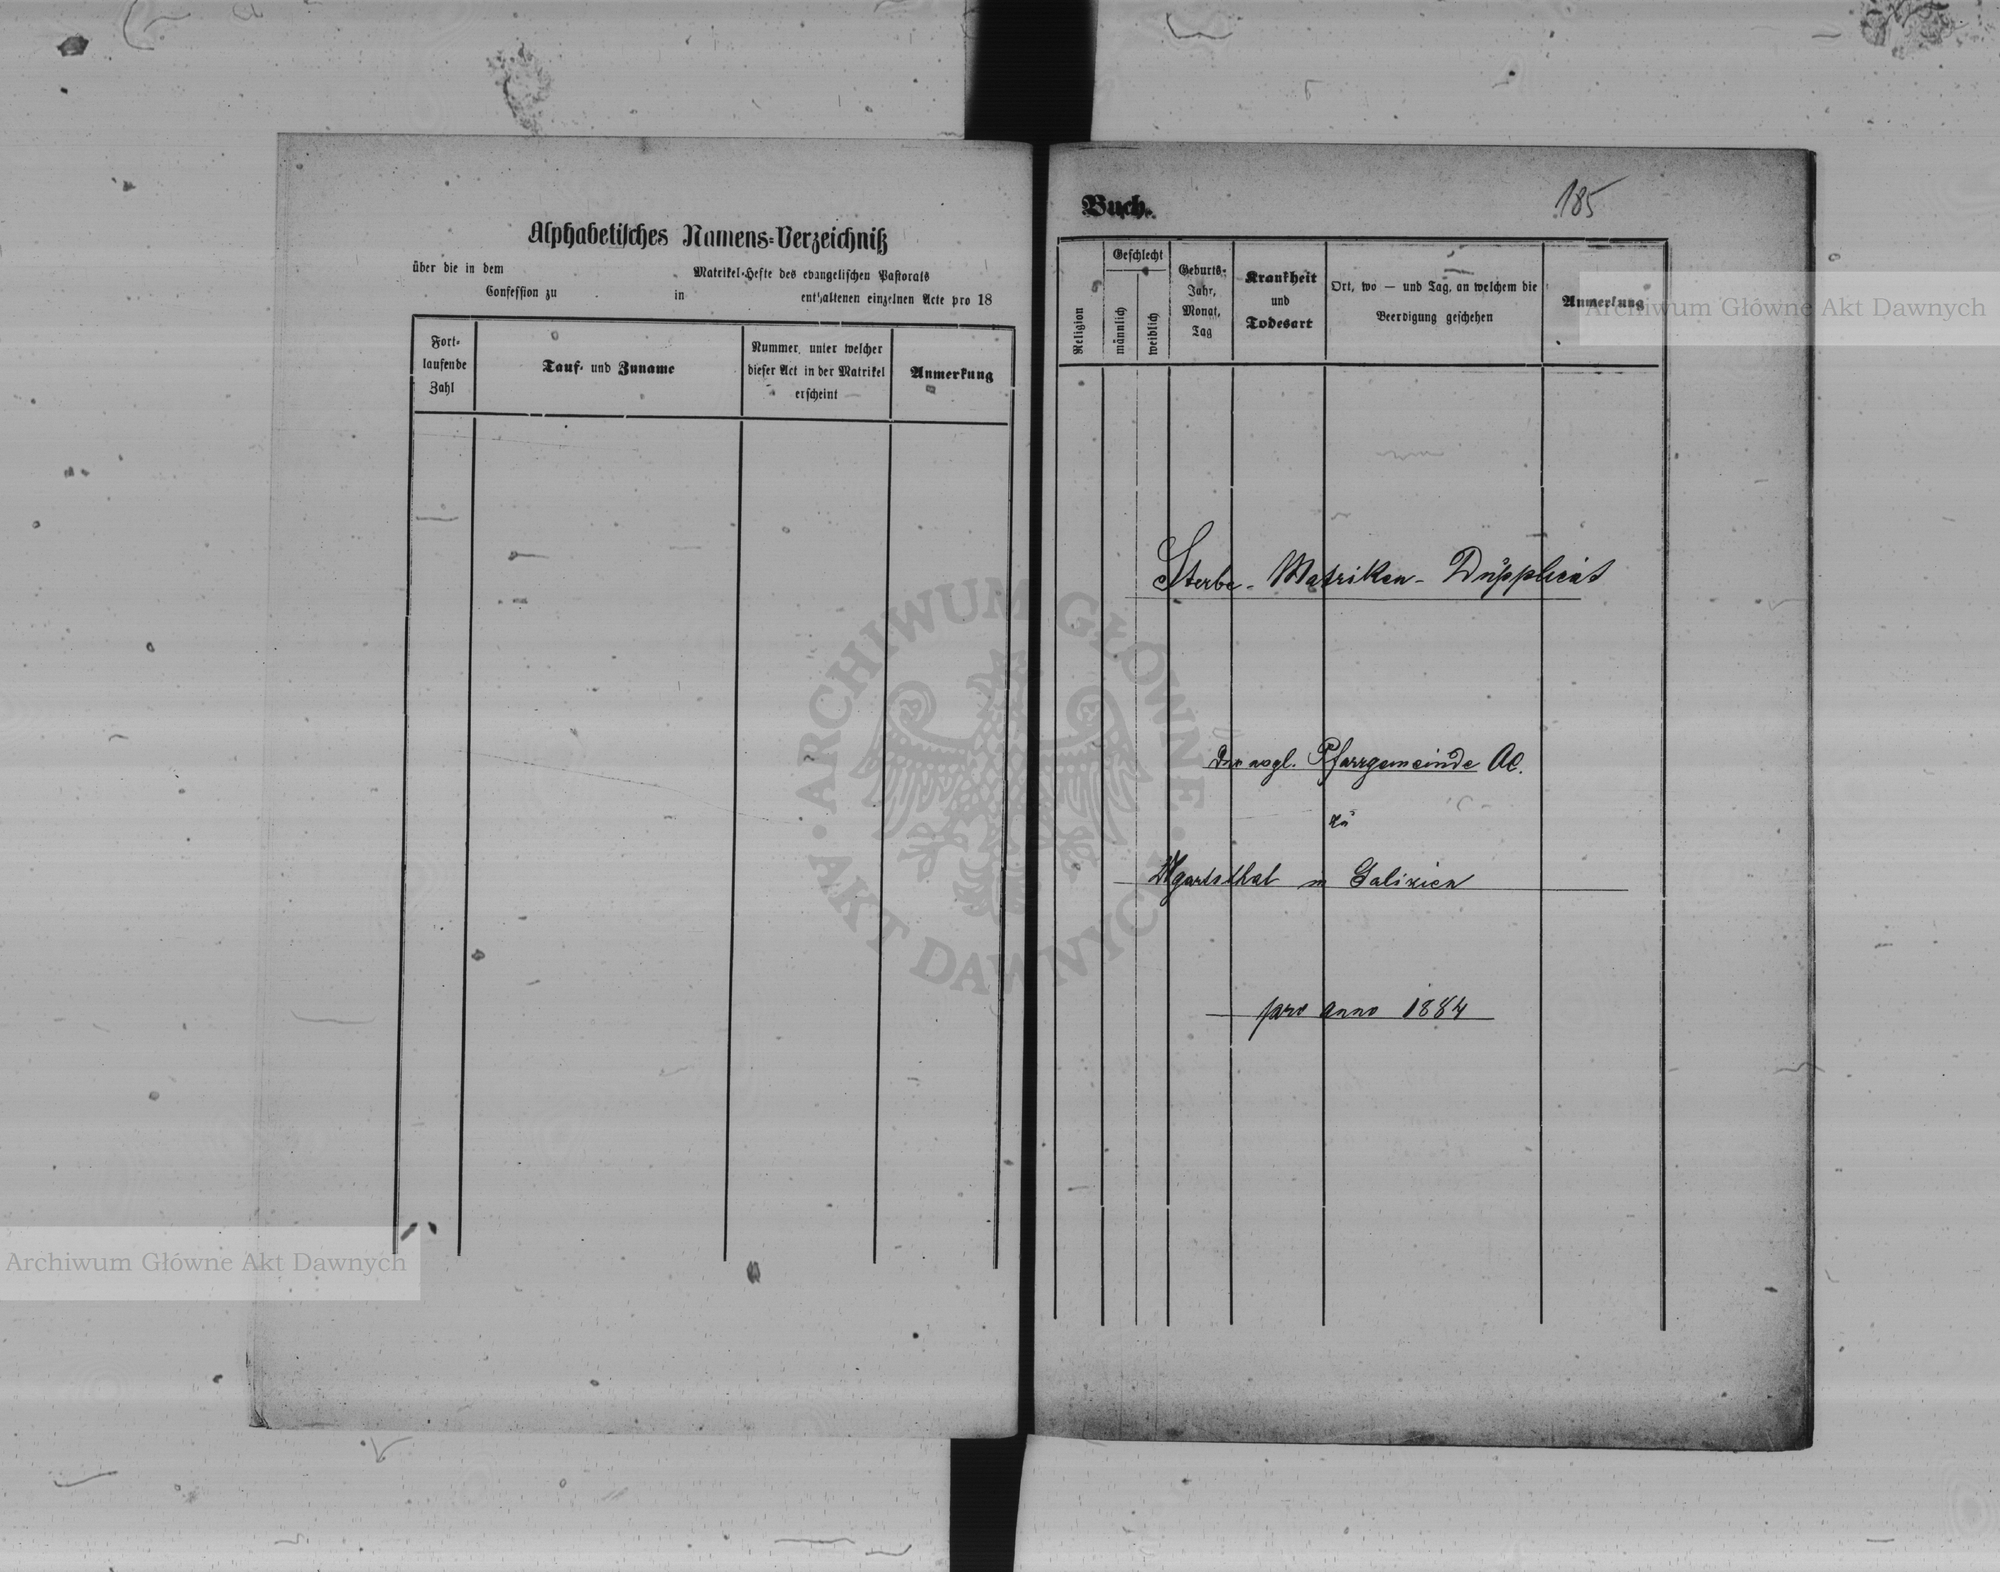 Alphabetisches Namens-Verzeichniß
über die in dem Matrikel-Hefte des evangelischen Pastorats
Confession zu in enthaltenen einzelnen Acte pro 18
Fort-
laufende
Zahl
Tauf- und Zuname
Nummer, unter welcher
dieser Act in der Matrikel
erscheint
Anmerkung
Buch.
185
Religion
Geschlecht
männlich
weiblich
Geburts-
Jahr,
Monat,
Tag
Krankheit
und
Todesart
Ort, wo — und Tag, an welchem die
Beerdigung geschehen
Anmerkung
Sterbe-Matriken-Dŭpplicat
Pfarrgemeinde AC.
zŭ
Ugartsthal in Galizien
pro anno 1884
ARCHIWUM GŁÓWNE
AKT DAWNYCH
Archiwum Główne Akt Dawnych
Archiwum Główne Akt Dawnych